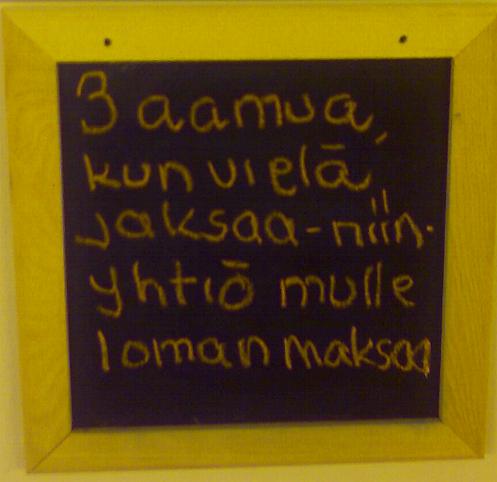 3 aamua,
kun vielä
jaksaa-niin.
yhtiö mulle
loman maksaa